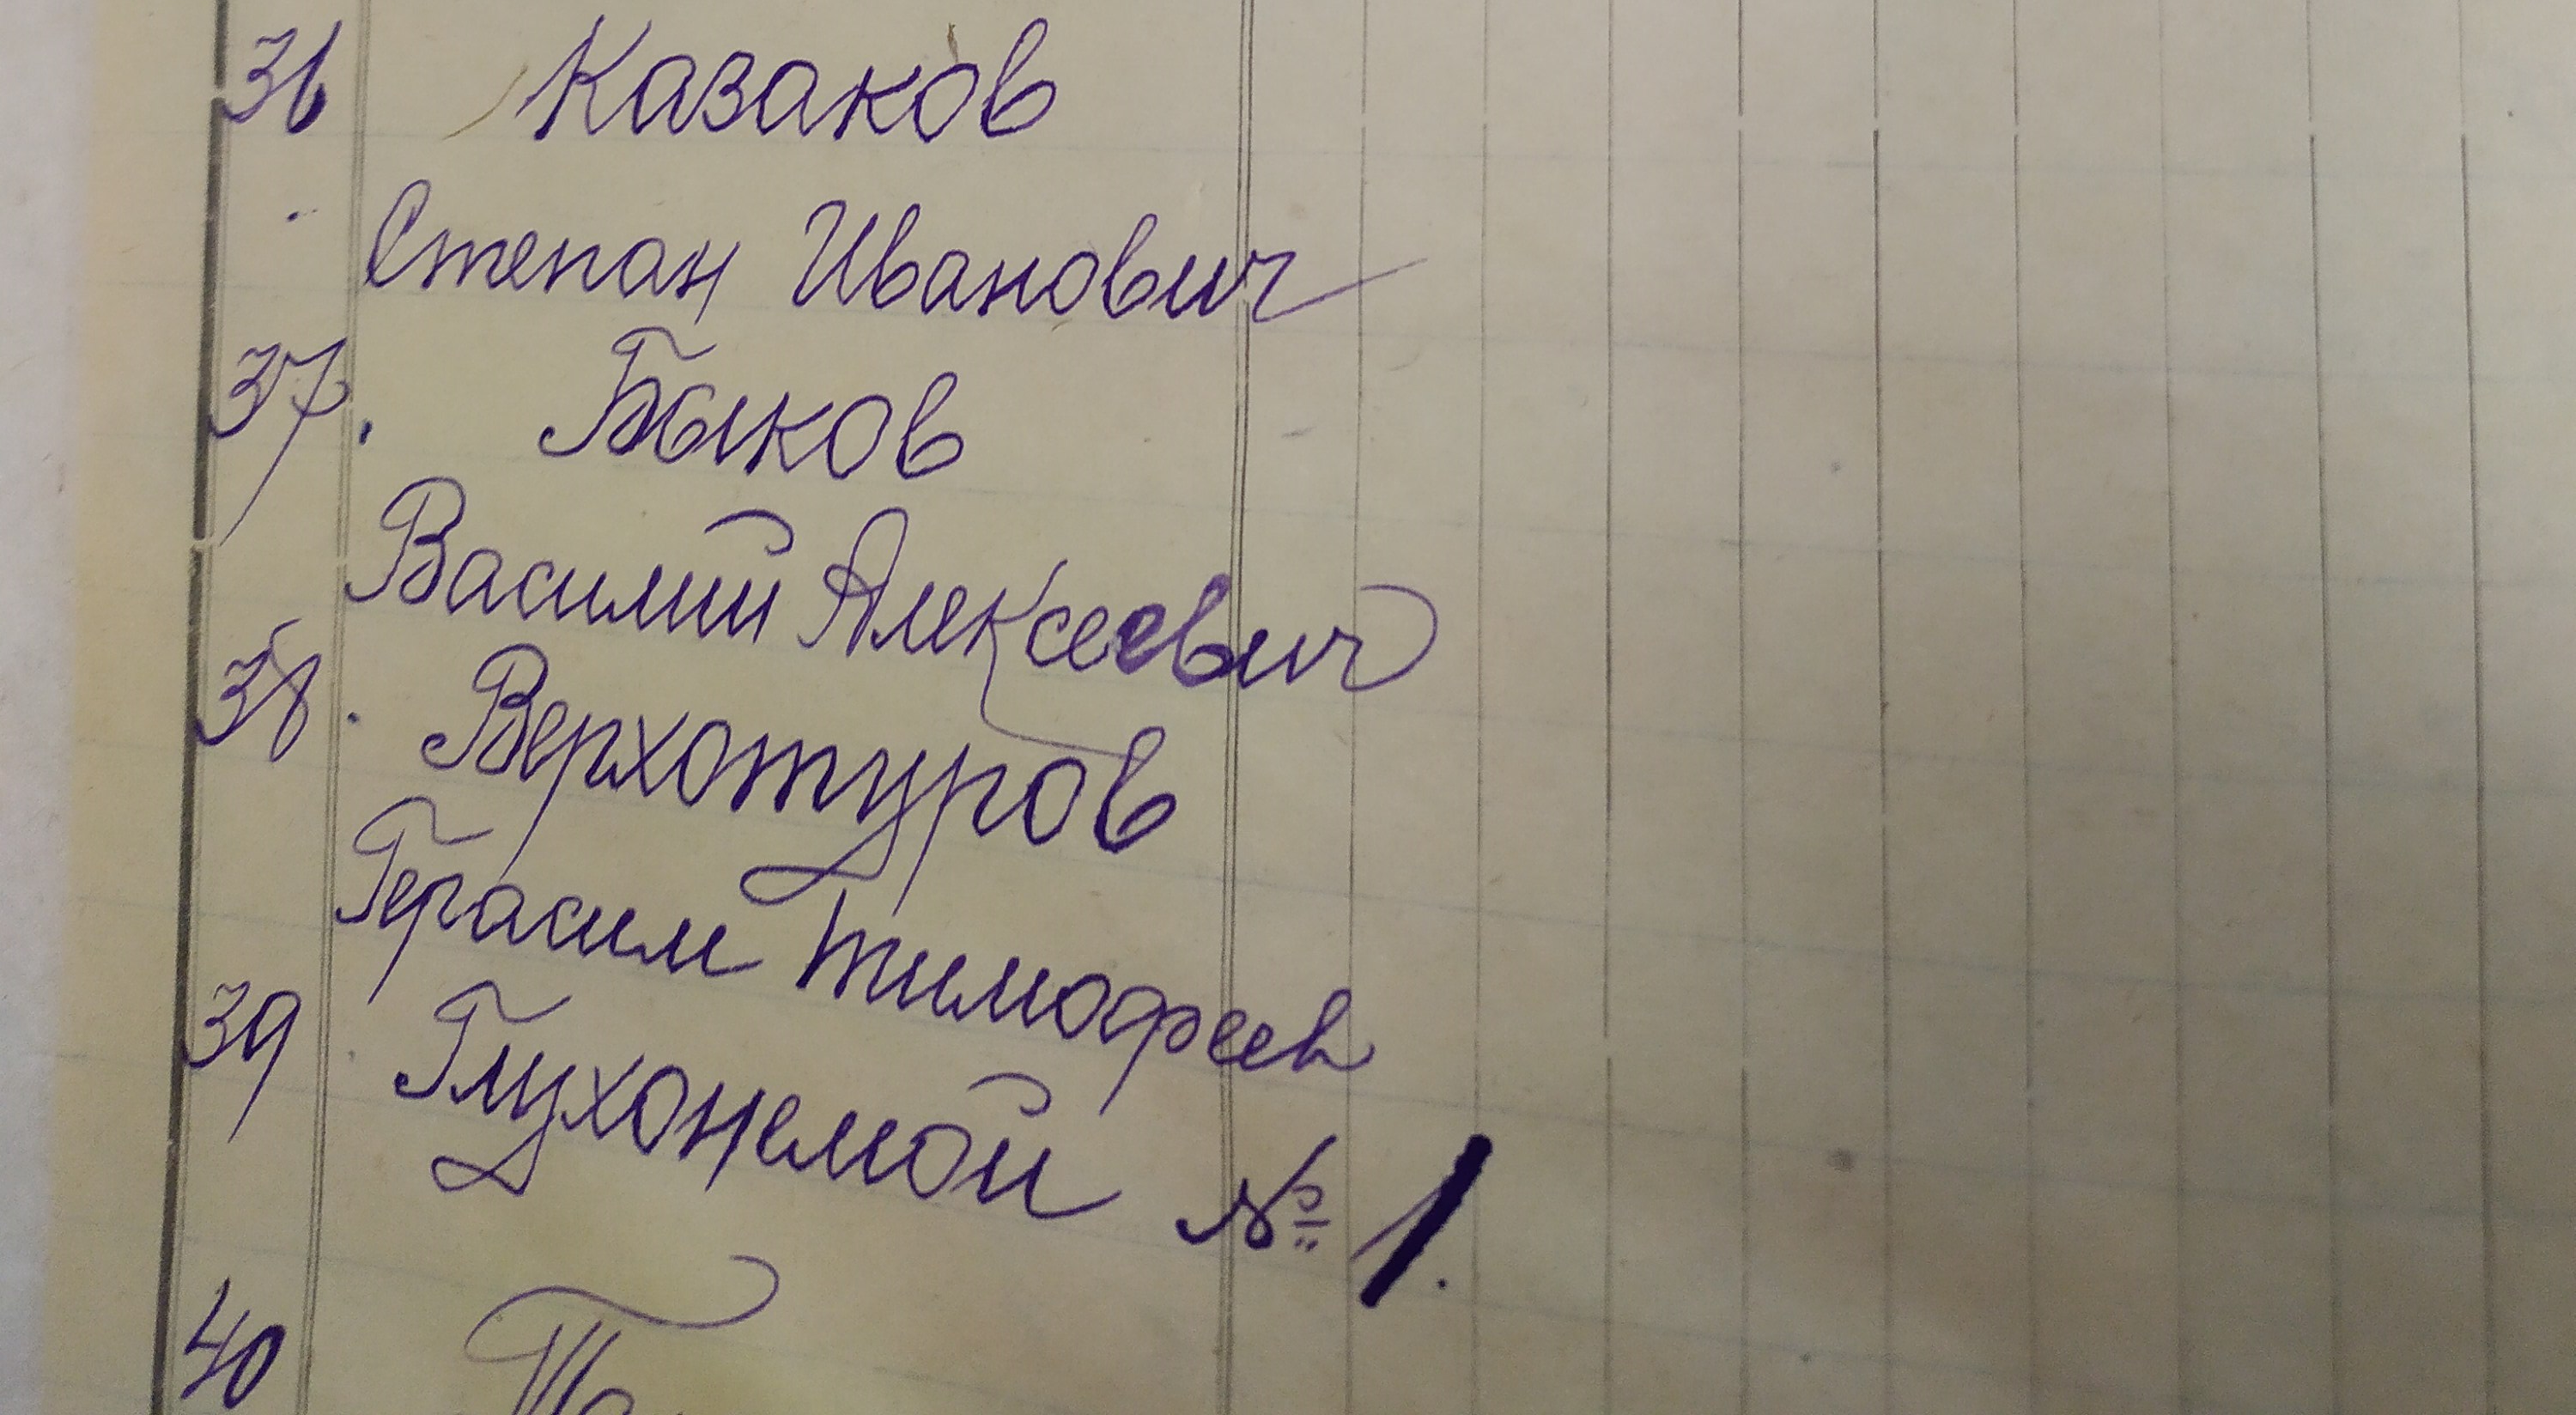 36 Казаков
Степан Иванович
37. Быков
Василий Алексеевич
38. Верхотуров
Герасим Тимофеев
39 Глухонемой № 1.
40